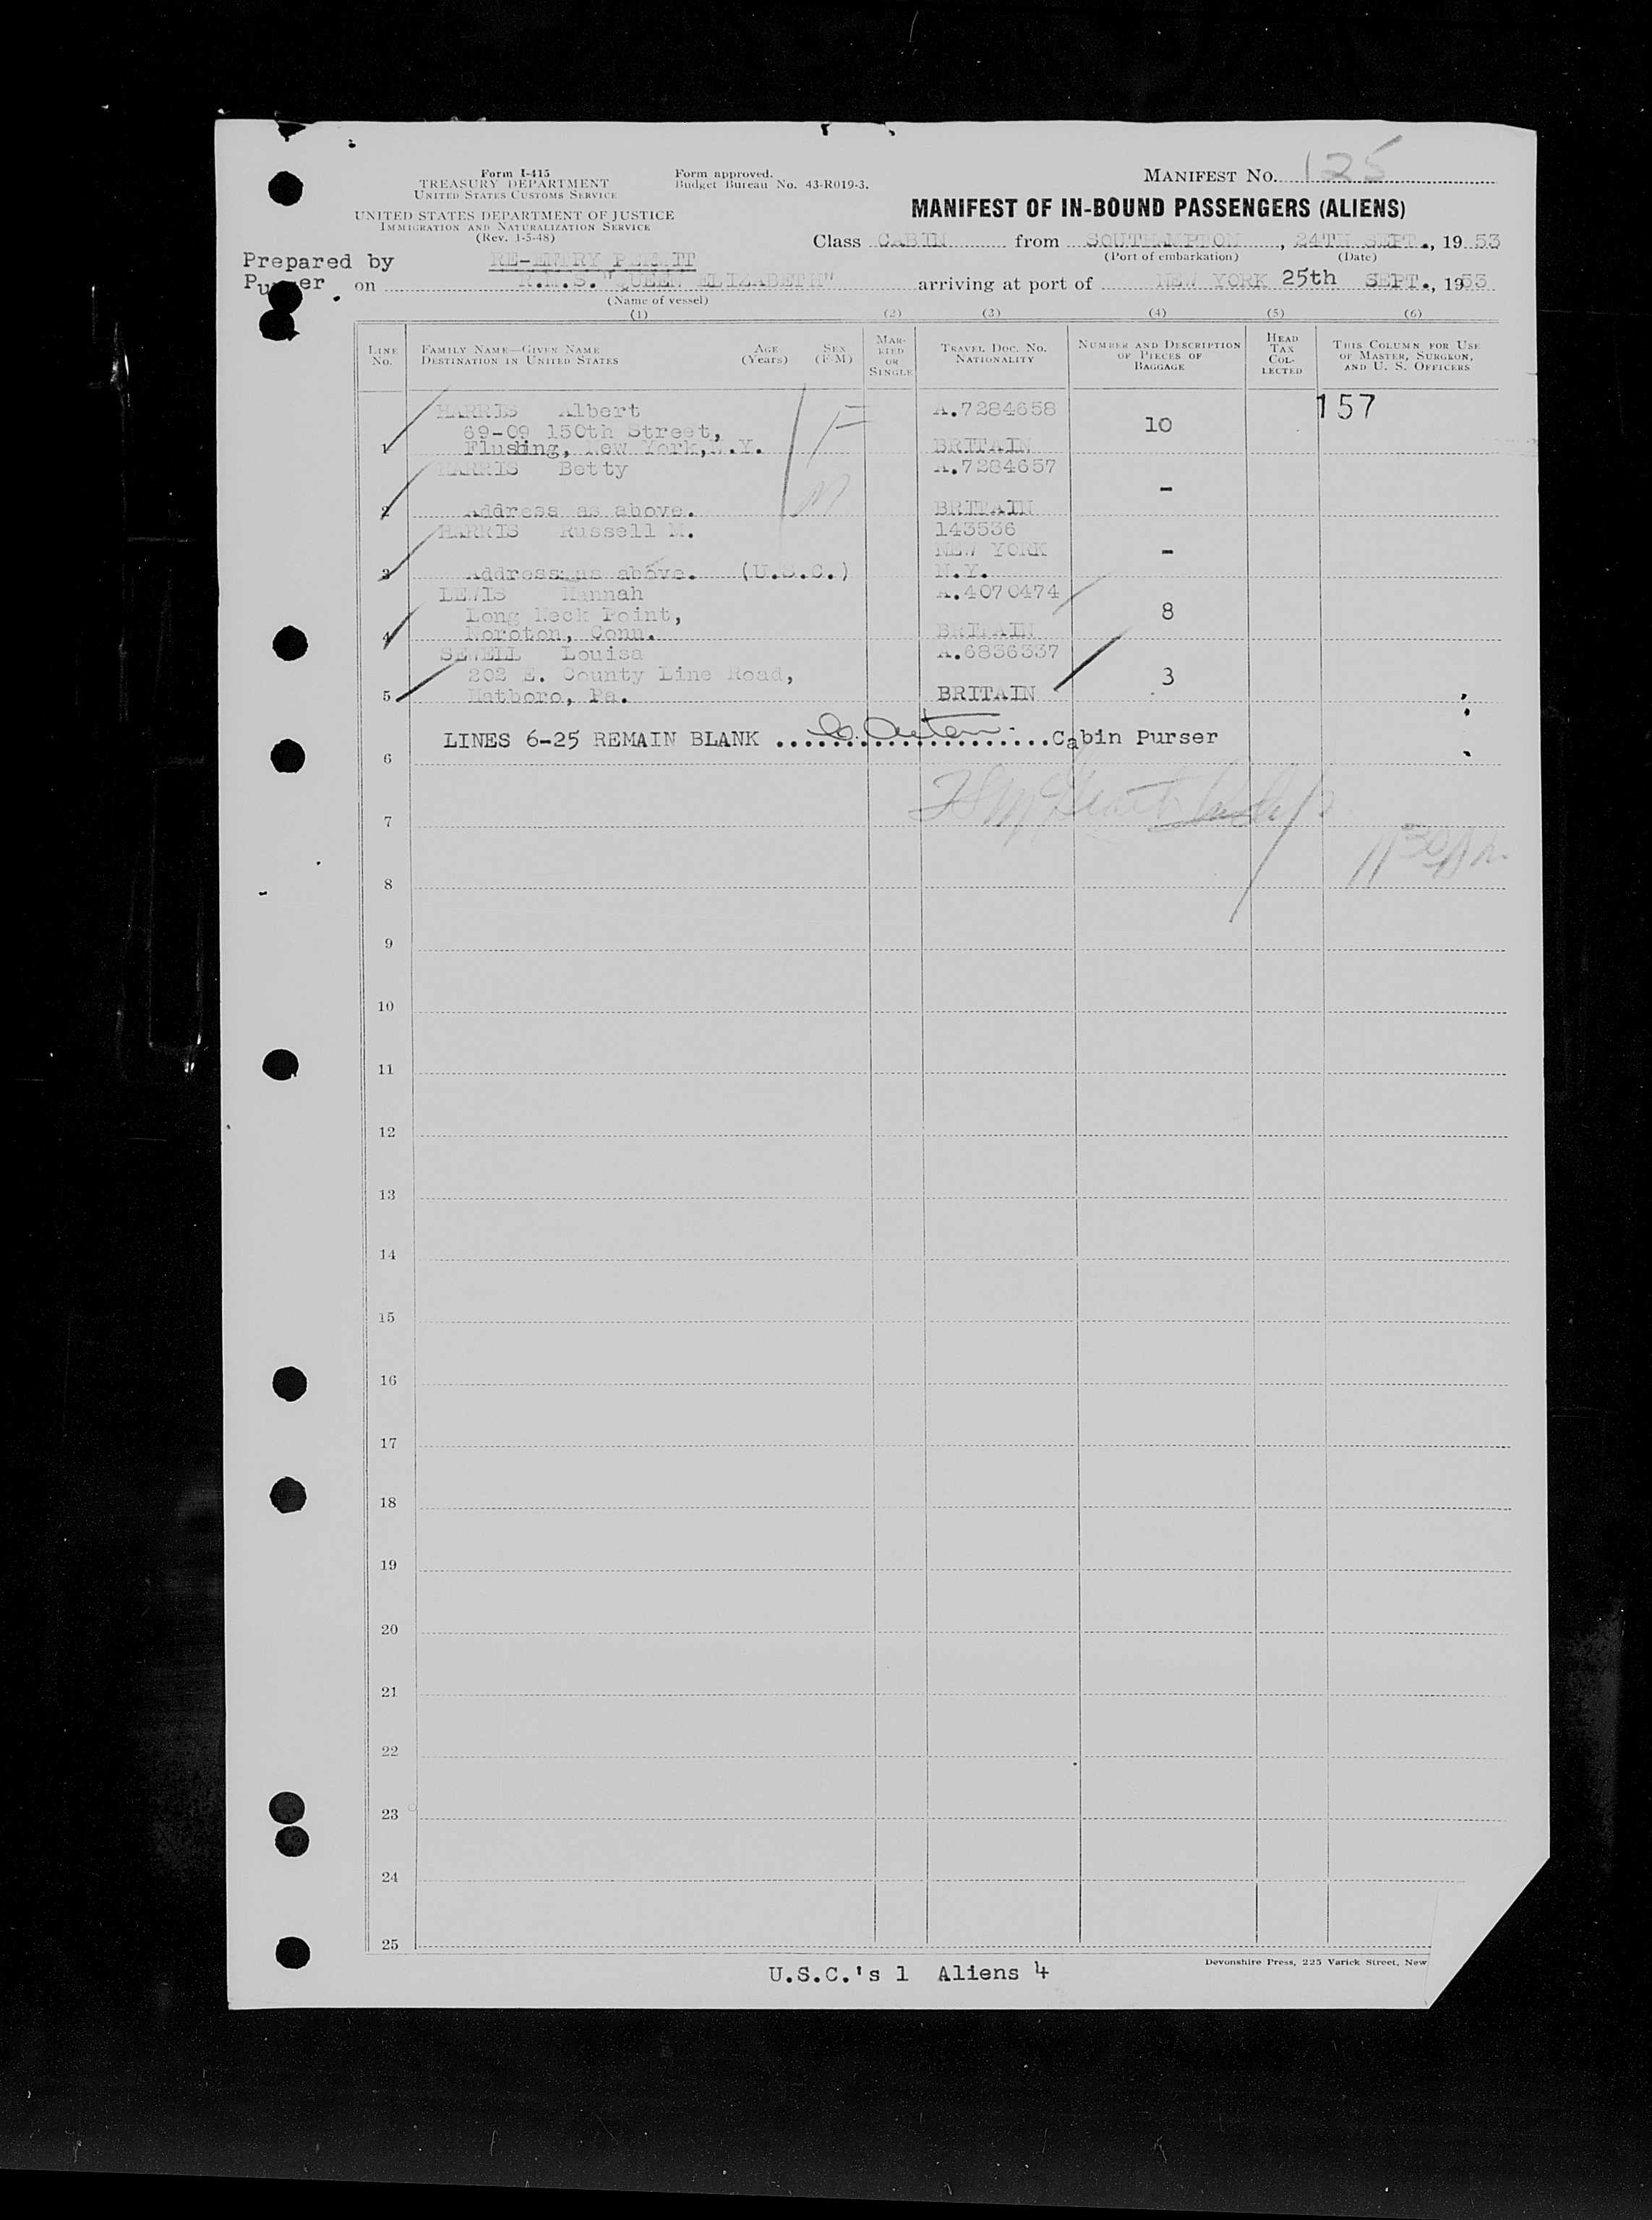 Form I-415
TREASURY DEPARTMENT
UNITED STATES CUSTOMS SERVICE
Form approved.
Budget Bureau No. 43-R019-3.
MANIFEST NO. 125
UNITED STATES DEPARTMENT OF JUSTICE
IMMIGRATION AND NATURALIZATION SERVICE
(Rev. 1-5-48)
MANIFEST OF IN-BOUND PASSENGERS (ALIENS)
Class CABIN from SOUTHAMPTON, 24TH SEPT., 19 53
(Port of embarkation) (Date)
Prepared by RE-ENTRY PERMIT
on R.M.S. "QUEEN ELIZABETH" arriving at port of NEW YORK 25th SEPT., 1953
(Name of vessel)
(1) (2) (3) (4) (5) (6)
LINE NO.
FAMILY NAME—GIVEN NAME
DESTINATION IN UNITED STATES
AGE (Years)
SEX (F-M)
MARRIED OR SINGLE
TRAVEL DOC. NO.
NATIONALITY
NUMBER AND DESCRIPTION OF PIECES OF BAGGAGE
HEAD TAX COLLECTED
THIS COLUMN FOR USE OF MASTER, SURGEON, AND U. S. OFFICERS
HARRIS Albert A.7284658 157
69-09 150th Street, F 10
1 Flushing, New York, N.Y. BRITAIN
HARRIS Betty A.7284657
M -
2 Address as above. BRITAIN
HARRIS Russell M. 143536
NEW YORK -
3 Address as above. (U.S.C.) N.Y.
LEWIS Hannah A.4070474
Long Neck Point, 8
4 Noroton, Conn. BRITAIN
SEWELL Louisa A.6836337
202 E. County Line Road, 3
5 Hatboro, Pa. BRITAIN
LINES 6-25 REMAIN BLANK Cabin Purser
6
7
8
9
10
11
12
13
14
15
16
17
18
19
20
21
22
23
24
25
Devonshire Press, 225 Varick Street, New
U.S.C.'s 1 Aliens 4